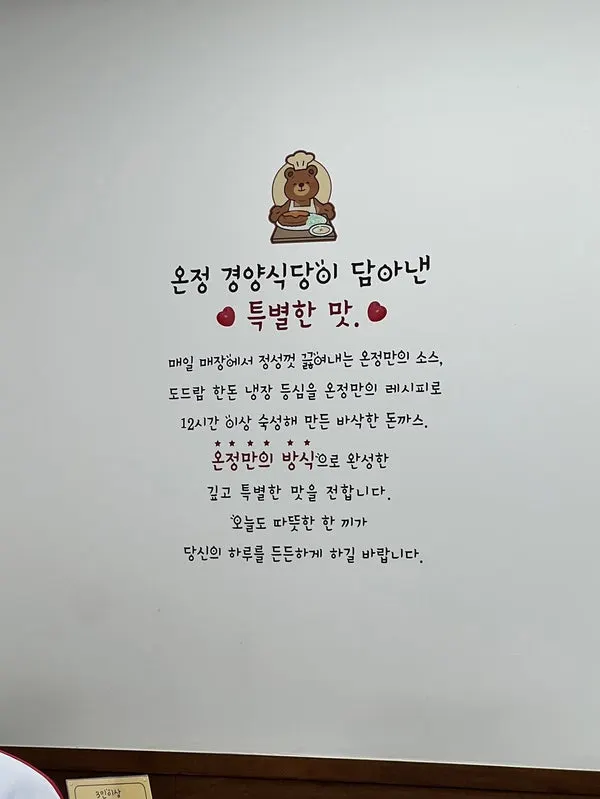 온정 경양식당이 담아낸
특별한 맛.
매일 매장에서 정성껏 끓여내는 온정만의 소스,
도드람 한돈 냉장 등심을 온정만의 레시피로
12시간 이상 숙성해 만든 바삭한 돈까스.
온정만의 방식으로 완성한
깊고 특별한 맛을 전합니다.
오늘도 따뜻한 한 끼가
당신의 하루를 든든하게 하길 바랍니다.
3인이상